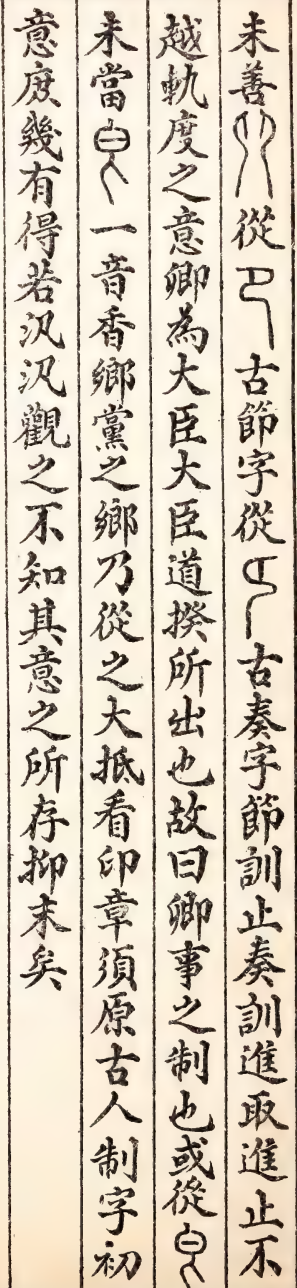 未善從古節字從古奏字節訓止奏訓進取進止不
越軌度之意卿為大臣大臣道揆所出也故曰卿事之制也或從
未當一音香鄉黨之鄉乃從之大抵看印章須原古人制字初
意庶幾有得若汎汎觀之不知其意之所存抑末矣